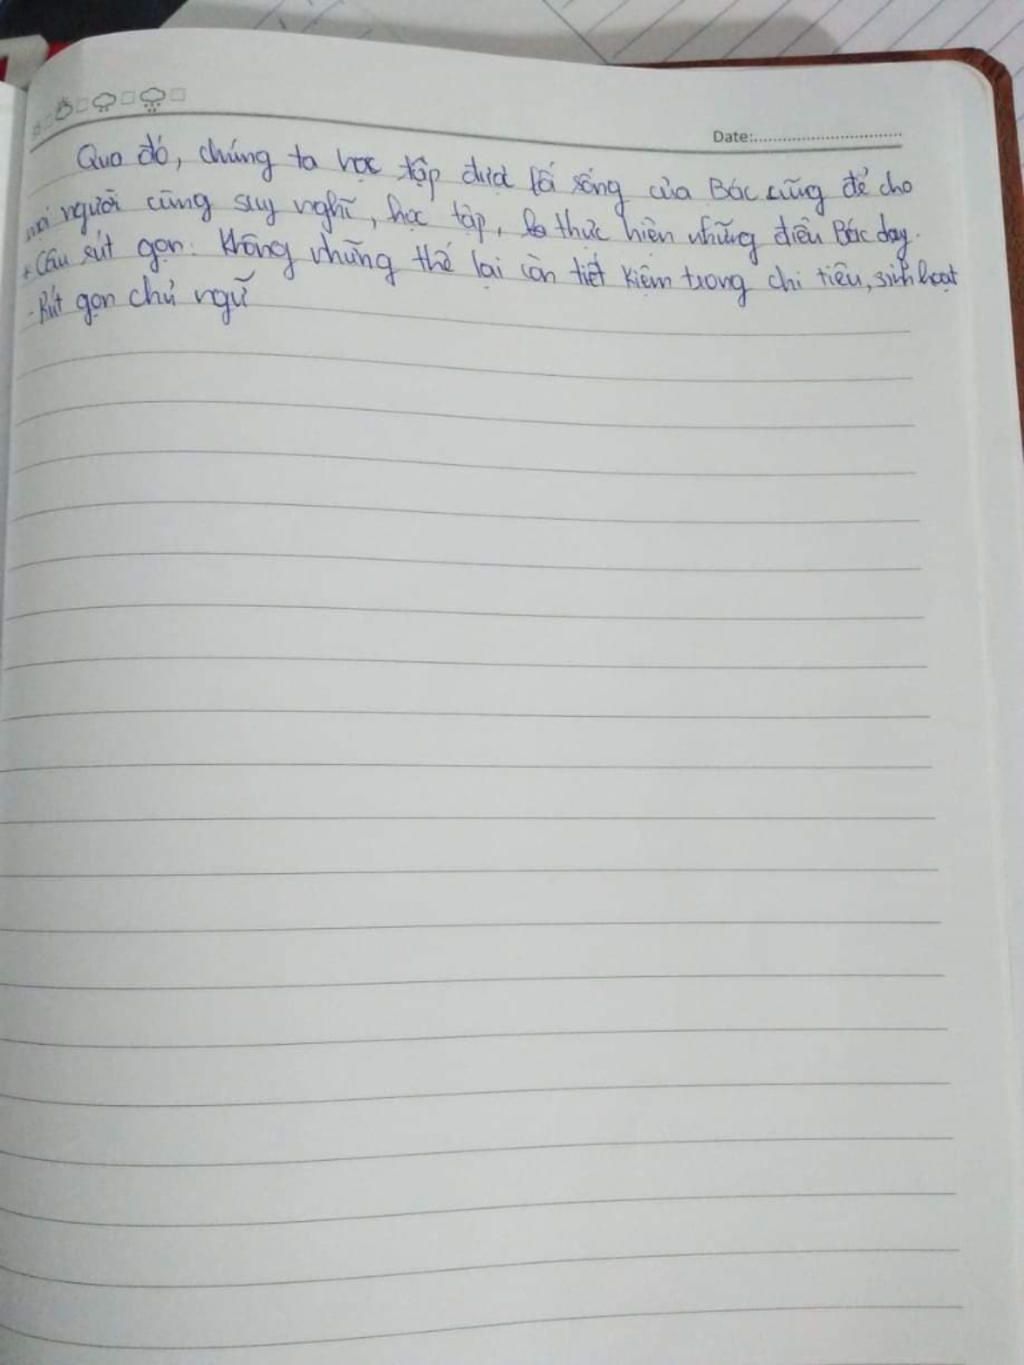 Date:
Qua đó, chúng ta học tập được lối sống của Bác cũng để cho
mọi người cùng suy nghĩ, học tập, thực hiện những điều Bác dạy.
+ Câu rút gọn: Không những thế lại còn tiết kiệm trong chi tiêu, sinh hoạt
- Rút gọn chủ ngữ